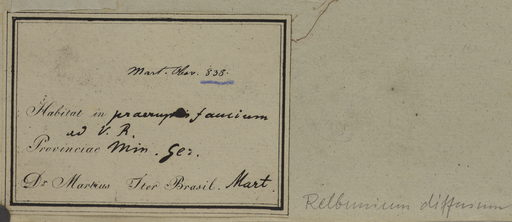 Mart. Obs. 838.
Habitat in praeruptis faucium
ad V. R.
Provinciae Min. Ger.
Dr. Martius Iter Brasil. Mart.
Relbunium diffusum